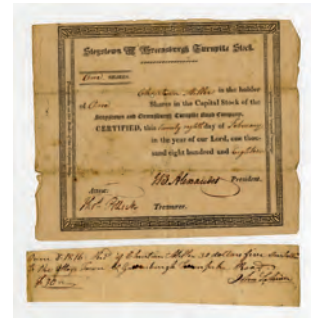 Stegstown & Greensburgh Turnpike Stock.
One SHARES.
Christian Miller is the holder
of One Shares in the Capital Stock of the
Stegstown and Greensburgh Turnpike Road Company.
CERTIFIED, this twenty eighth day of February
in the year of our Lord, one thou-
sand eight hundred and eighteen
Wm. Alexander President.
Attest:
Treasurer.
1816 Christian Miller 30 dollars five
to the Town & Greensburgh Turnpike Road
$30
John